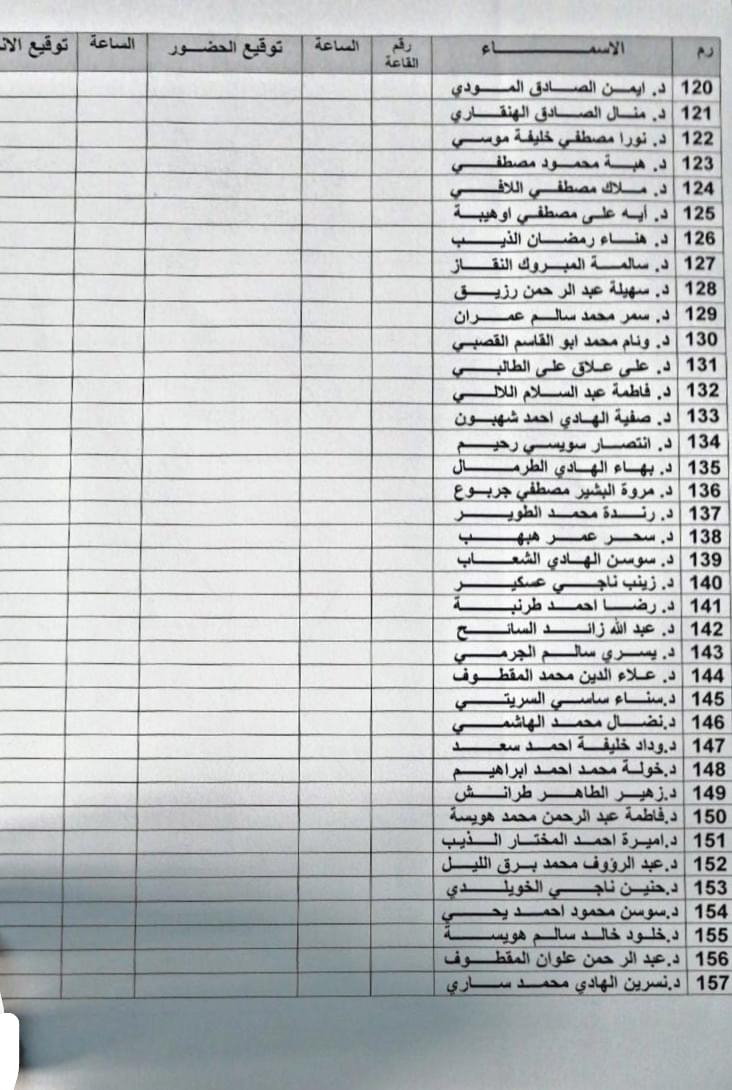 رم الاسماء رقم القاعة الساعة توقيع الحضور الساعة توقيع
120 د. ايمن الصادق المودي
121 د. منال الصادق الهنقاري
122 د. نورا مصطفي خليفة موسي
123 د. هبة محمود مصطفي
124 د. ملاك مصطفي اللافي
125 د. أيه على مصطفي اوهيبة
126 د. هناء رمضان الذيب
127 د. سالمة المبروك النقاز
128 د. سهيلة عبد الر حمن رزيق
129 د. سمر محمد سالم عمران
130 د. ونام محمد ابو القاسم القصبي
131 د. على علاق على الطالبي
132 د. فاطمة عبد السلام اللالي
133 د. صفية الهادي احمد شهبون
134 د. انتصار سويسي رحيم
135 د. بهاء الهادي الطرمال
136 د. مروة البشير مصطفي جربوع
137 د. رندة محمد الطوير
138 د. سحر عمر هبهب
139 د. سوسن الهادي الشعاب
140 د. زينب ناجي عسكير
141 د. رضا احمد طرنبة
142 د. عبد الله زاند السانح
143 د. يسري سالم الجرمي
144 د. علاء الدين محمد المقطوف
145 د.سناء ساسي السريتي
146 د.نضال محمد الهاشمي
147 د.وداد خليفة احمد سعد
148 د.خولة محمد احمد ابراهيم
149 د.زهير الطاهر طرانش
150 د.فاطمة عبد الرحمن محمد هويسة
151 د.اميرة احمد المختار الذيب
152 د.عبد الرؤوف محمد برق الليل
153 د.حنين ناجي الخويلدي
154 د.سوسن محمود احمد يحي
155 د.خلود خالد سالم هويسة
156 د.عبد الر حمن علوان المقطوف
157 د.نسرين الهادي محمد ساري